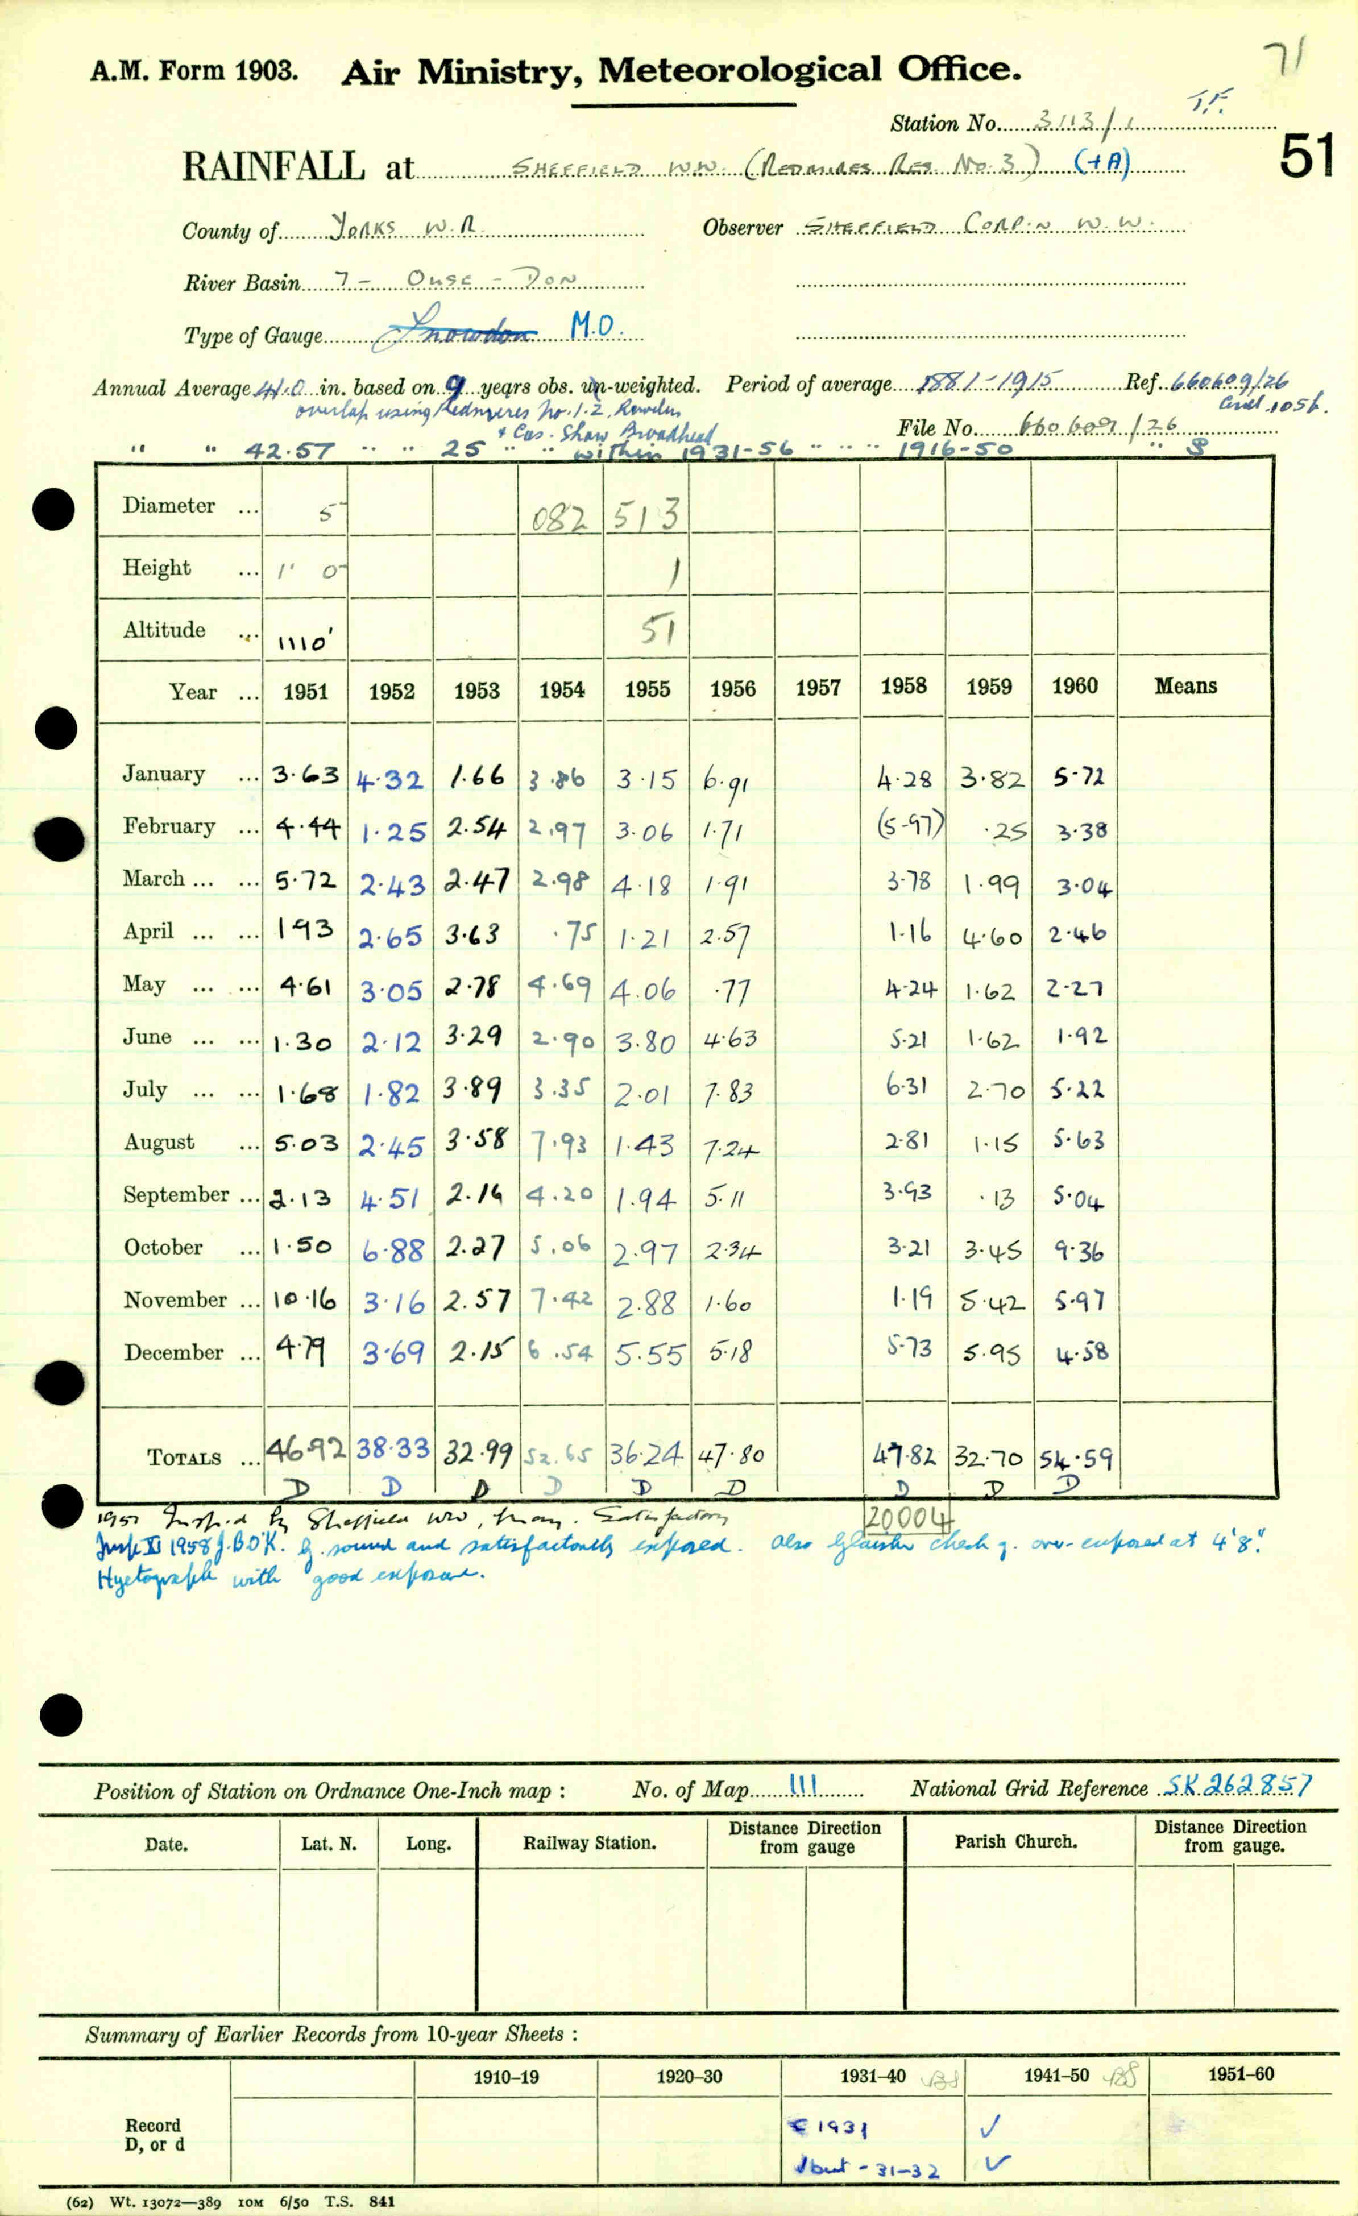 71
A.M. Form 1903. Air Ministry, Meteorological Office.
T.F.
Station No. 3113/1
51
RAINFALL at SHEFFIELD W.W. (REDMIRES RES. No. 3) (+A)
County of YORKS W.R. Observer SHEFFIELD CORP'N W.W.
River Basin 7 - OUSE - DON
Type of Gauge Snowdon M.O.
Annual Average 41.0 in. based on 9 years obs. un-weighted. Period of average 1881-1915 Ref. 660609/26
overlap using Redmires No. 1. 2, Rowden
& Cas. Shaw Broadhead File No. 660609/26
" " 42.57 " " 25 " " within 1931-56 " " " 1916-50 " S
Diameter ... 5 082 513
Height ... 1' 0 1
Altitude ... 1110' 51
Year ... 1951 1952 1953 1954 1955 1956 1957 1958 1959 1960 Means
January ... 3.63 4.32 1.66 3.86 3.15 6.91 4.28 3.82 5.72
February ... 4.44 1.25 2.54 2.97 3.06 1.71 (5.97) .25 3.38
March ... ... 5.72 2.43 2.47 2.98 4.18 1.91 3.78 1.99 3.04
April ... ... 1.93 2.65 3.63 .75 1.21 2.57 1.16 4.60 2.46
May ... ... 4.61 3.05 2.78 4.69 4.06 .77 4.24 1.62 2.27
June ... ... 1.30 2.12 3.29 2.90 3.80 4.63 5.21 1.62 1.92
July ... ... 1.68 1.82 3.89 3.35 2.01 7.83 6.31 2.70 5.22
August ... 5.03 2.45 3.58 7.93 1.43 7.24 2.81 1.15 5.63
September ... 2.13 4.51 2.16 4.20 1.94 5.11 3.93 .13 5.04
October ... 1.50 6.88 2.27 5.06 2.97 2.34 3.21 3.45 9.36
November ... 10.16 3.16 2.57 7.42 2.88 1.60 1.19 5.42 5.97
December ... 4.79 3.69 2.15 6.54 5.55 5.18 5.73 5.95 4.58
TOTALS ... 46.92 38.33 32.99 52.65 36.24 47.80 47.82 32.70 54.59
D D D D D D D D D
1951 Inspd by Sheffield WW, May. Satisfactory 20004
Insp. XI 1958 J.BO'K. G. sound and satisfactorily exposed. also Glaisher check g. over-exposed at 4'8".
Hyetograph with good exposure.
Position of Station on Ordnance One-Inch map : No. of Map 111 National Grid Reference SK 262857
Date. Lat. N. Long. Railway Station. Distance Direction from gauge Parish Church. Distance Direction from gauge.
Summary of Earlier Records from 10-year Sheets :
1910–19 1920–30 1931–40 1941–50 1951–60
Record ε 1931 ✓
D, or d √ but - 31-32 ✓
(62) Wt. 13072—389 10M 6/50 T.S. 841